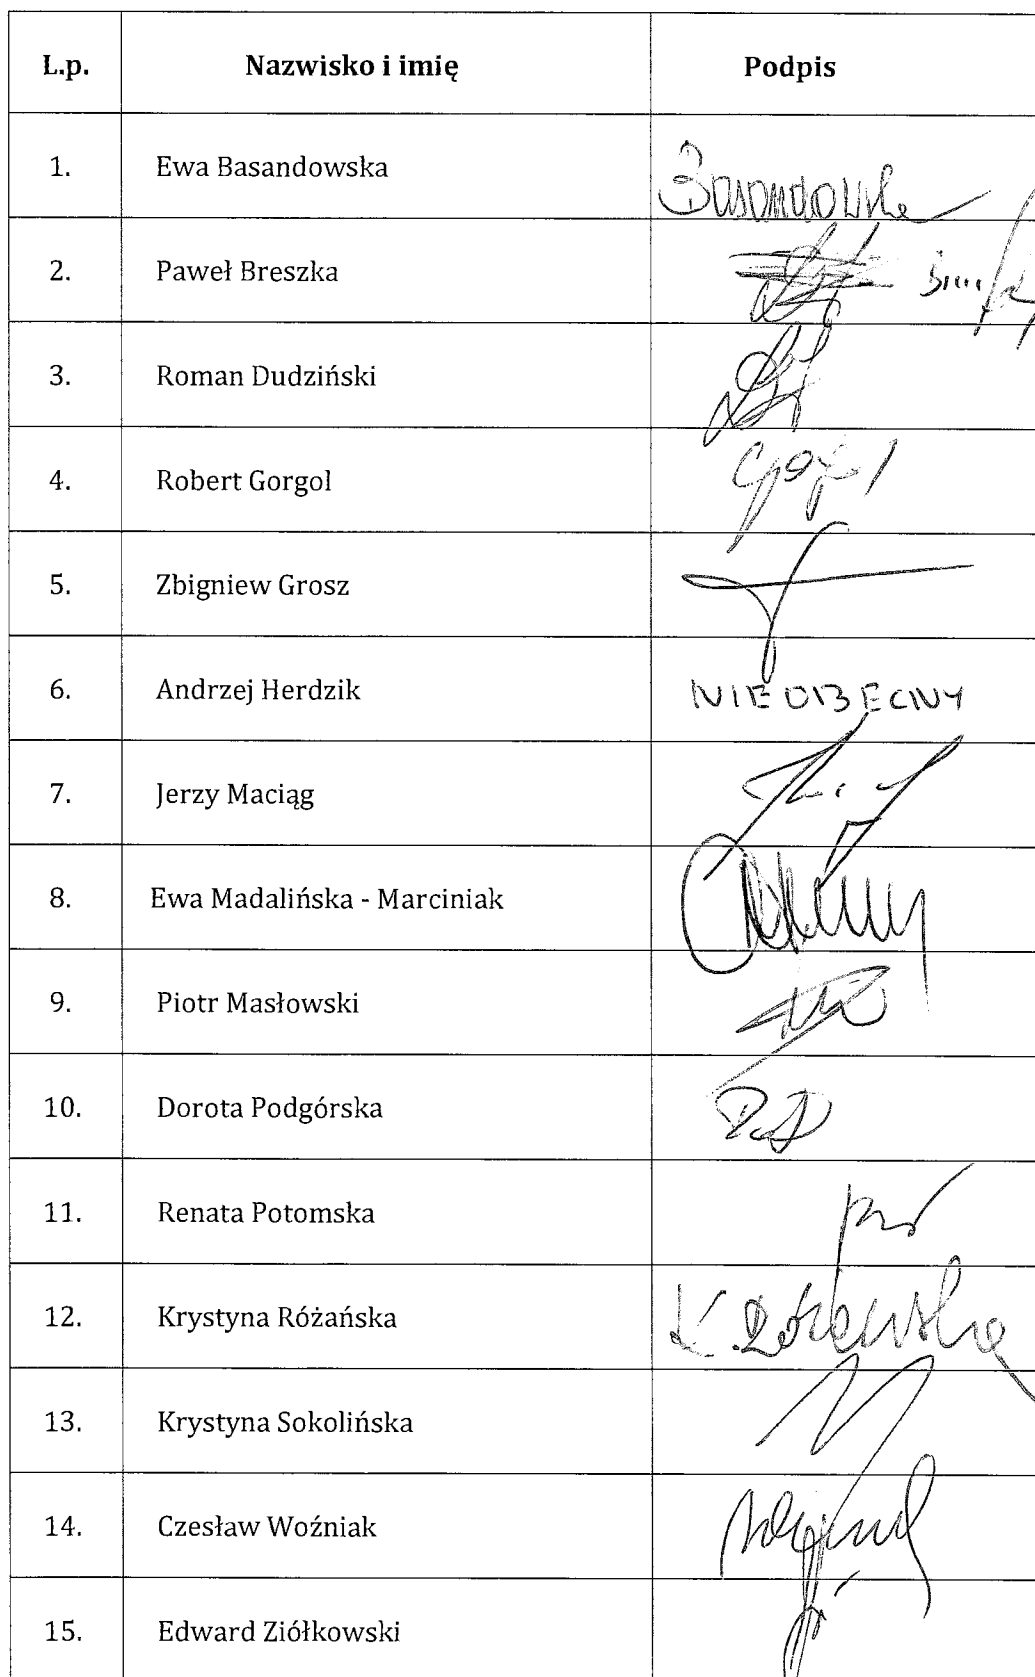 L.p. Nazwisko i imię Podpis
1. Ewa Basandowska Basandowska
2. Paweł Breszka
3. Roman Dudziński
4. Robert Gorgol
5. Zbigniew Grosz
6. Andrzej Herdzik NIEOBECNY
7. Jerzy Maciąg
8. Ewa Madalińska - Marciniak
9. Piotr Masłowski
10. Dorota Podgórska
11. Renata Potomska
12. Krystyna Różańska
13. Krystyna Sokolińska
14. Czesław Woźniak
15. Edward Ziółkowski